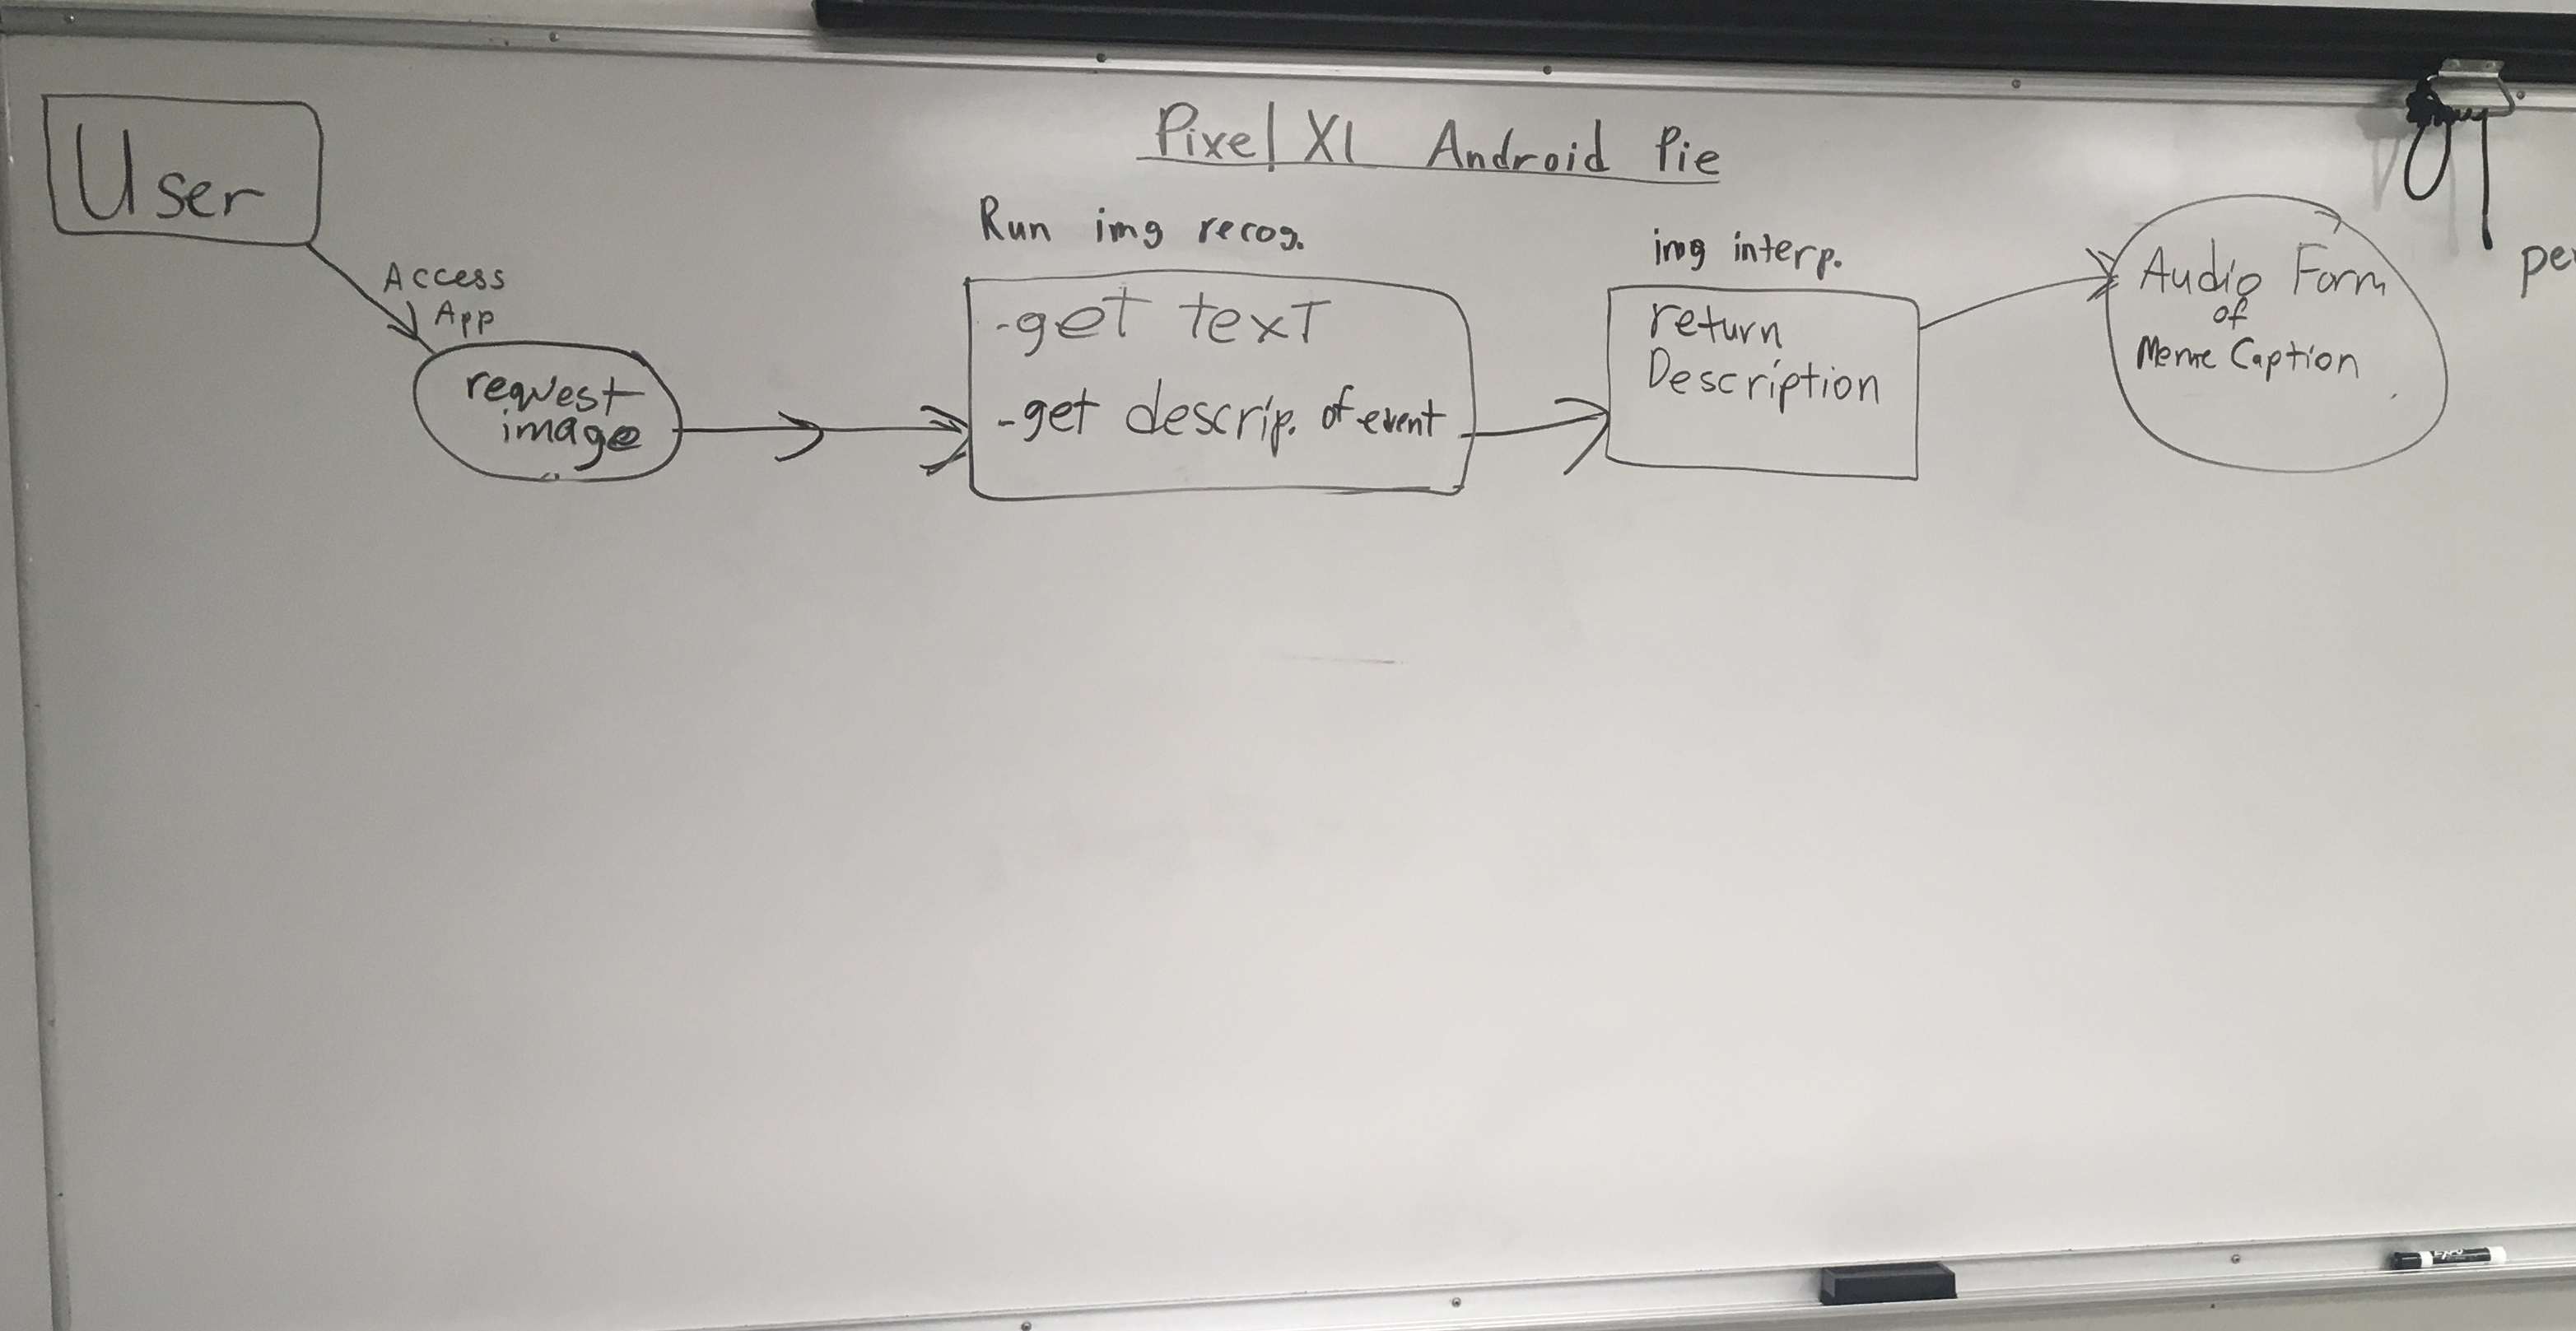 Pixel XL Android Pie
User
Access
App
request
image
Run img recog.
-get text
-get descrip. of event
img interp.
return
Description
Audio Form
of
Meme Caption
EXPO